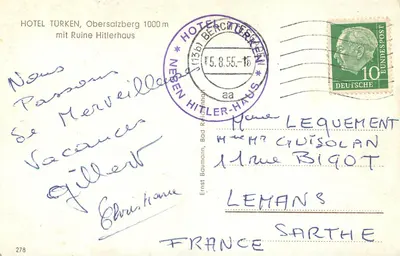 HOTEL TÜRKEN, Obersalzberg 1000 m
mit Ruine Hitlerhaus
HOTEL TÜRKEN
NEBEN HITLER-HAUS
(13b) BERCHTESGADEN
15.8.55.-15
aa
DEUTSCHE BUNDESPOST
10
Nous
Passons
de Merveilleuses
Vacances
Gilbert
Christiane
Ernst Baumann, Bad Reichenhall
Mr Mme LEQUEMENT
Mr GUISOLAN
11 RUE BIGOT
LEMANS
SARTHE
FRANCE
278